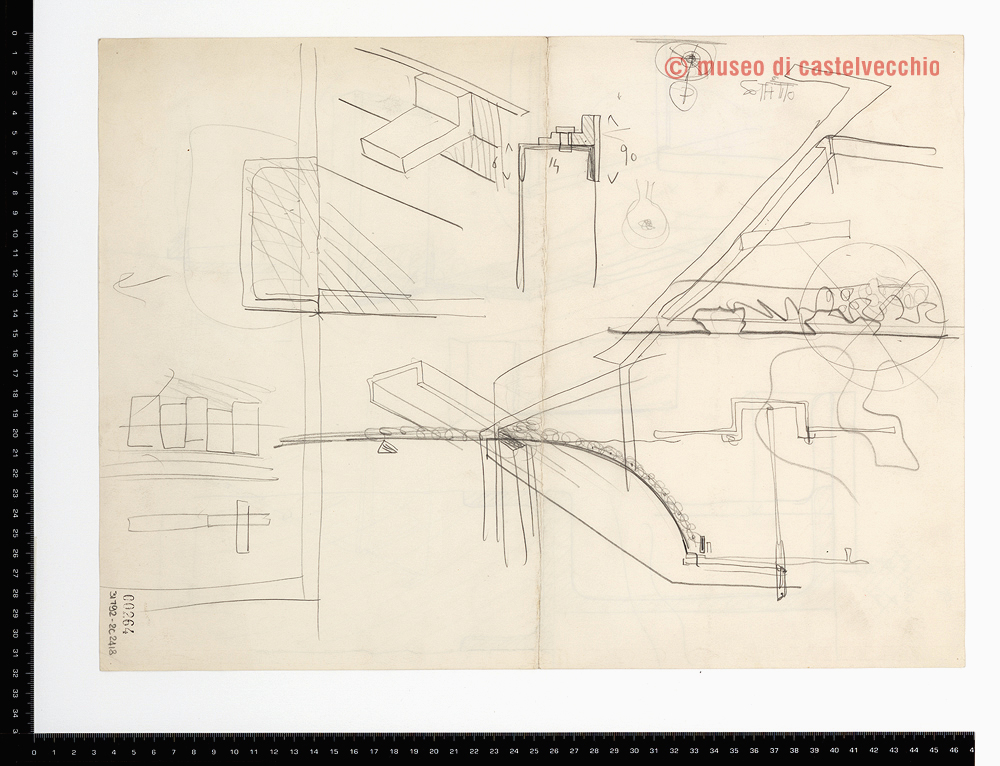 © museo di castelvecchio
SOFFITTO
6
14
90
00264
0 1 2 3 4 5 6 7 8 9 10 11 12 13 14 15 16 17 18 19 20 21 22 23 24 25 26 27 28 29 30 31 32 33 34 3
0 1 2 3 4 5 6 7 8 9 10 11 12 13 14 15 16 17 18 19 20 21 22 23 24 25 26 27 28 29 30 31 32 33 34 35 36 37 38 39 40 41 42 43 44 45 46 4